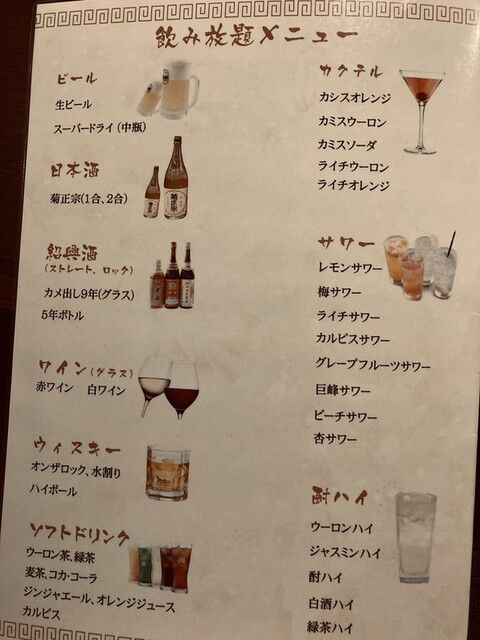 飲み放題メニュー
ビール
生ビール
スーパードライ（中瓶）
日本酒
菊正宗(1合、2合)
菊正宗
紹興酒
(ストレート、ロック)
カメ出し9年(グラス)
5年ボトル
ワイン(グラス)
赤ワイン 白ワイン
ウィスキー
オンザロック、水割り
ハイボール
ソフトドリンク
ウーロン茶、緑茶
麦茶、コカ・コーラ
ジンジャエール、オレンジジュース
カルピス
カクテル
カシスオレンジ
カミスウーロン
カミスソーダ
ライチウーロン
ライチオレンジ
サワー
レモンサワー
梅サワー
ライチサワー
カルピスサワー
グレープフルーツサワー
巨峰サワー
ピーチサワー
杏サワー
酎ハイ
ウーロンハイ
ジャスミンハイ
酎ハイ
白酒ハイ
緑茶ハイ